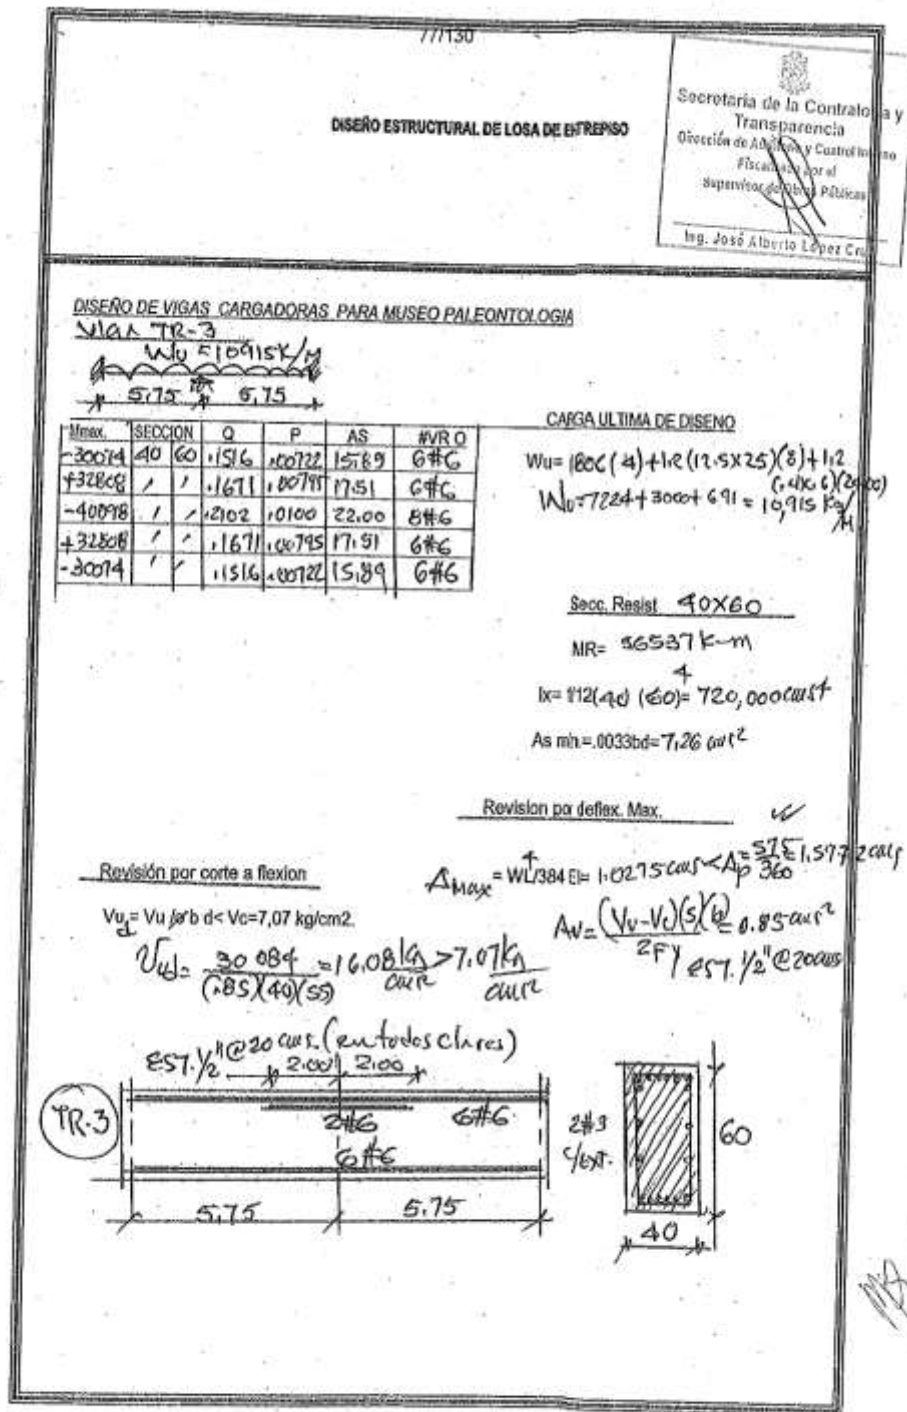 77/130
Secretaría de la Contraloría y
Transparencia
Dirección de Auditoría y Control Interno
Fiscalizado por el
Supervisor de Obras Públicas
Ing. José Alberto López Cruz
DISEÑO ESTRUCTURAL DE LOSA DE ENTREPISO
DISEÑO DE VIGAS CARGADORAS PARA MUSEO PALEONTOLOGIA
VIGA TR-3
Wu = 10915 K/M
5.75 5.75
Mmax. SECCION Q P AS #VR O
-30074 40 60 .1516 .00722 15.89 6#6
+32808 ' ' .1671 .00795 17.51 6#6
-40098 ' ' .2102 .0100 22.00 8#6
+32808 ' ' .1671 .00795 17.51 6#6
-30074 ' ' .1516 .00722 15.89 6#6
CARGA ULTIMA DE DISENO
Wu= 1806 (4) + 1.2 (12.5X25)(8) + 1.2
(.4X.6)(2400)
Wu=7224+3000+691 = 10,915 Kg/M
Secc. Resist 40X60
MR= 36537 K-m
4
Ix= 1/12(40) (60)= 720,000 cms4
As min.=.0033bd= 7.26 cms2
Revision por deflex. Max.
Δmax = WL4/384 EI= 1.0275 cms < Δp = 575/360 = 1.5972 cms
Revisión por corte a flexion
Vud= Vu /ø b d< Vc=7,07 kg/cm2.
Vud= 30 084/(.85)(40)(55) = 16.08 kg/cm2 > 7.07 kg/cm2
Av= (Vu-Vc)(S)(b)/2Fy = 0.85 cms2
EST. 1/2" @ 20 cms
EST. 1/2" @ 20 cms. (en todos claros)
2.00 2.00
TR-3
2#6 6#6
6#6
5.75 5.75
2#3
c/ext.
60
40